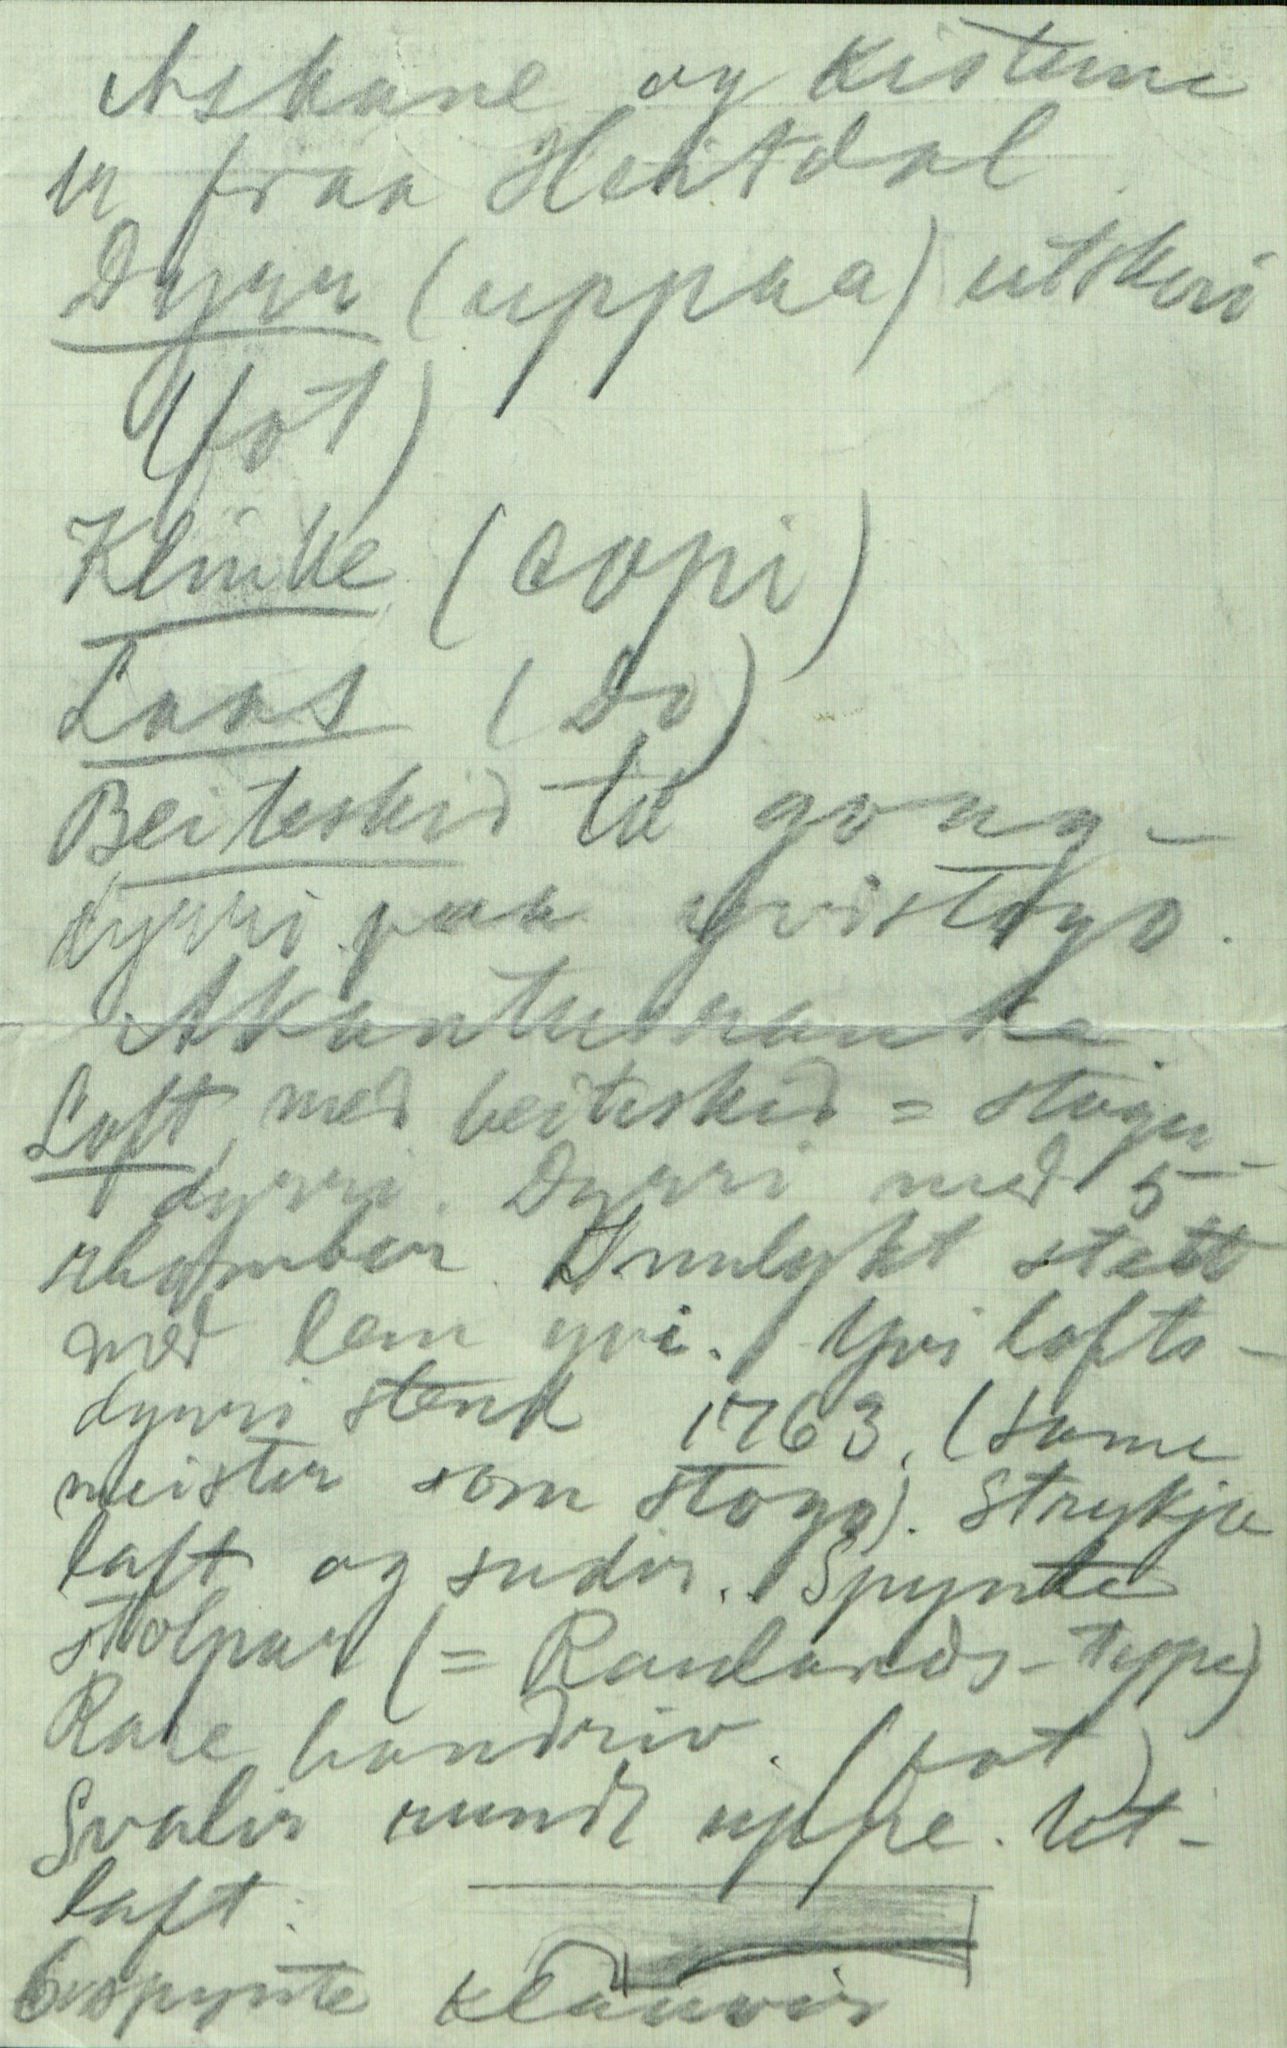 Askane og Kistune
er fraa Heitdal
Dyrer (uppaa) utskori
(fot)
Klinke (copi)
Laas (Do)
Beiteskid til gong-
dyrri paa yvistogo.
Akantusranke.
Loft med beiteskid = stogu-
dyrri. Dyrri med 5
rhomber. Innlykt
med lem yvi. Yvi lofts-
dyrri stend 1763. (same
meister som stogo). Strykje
laft og sudir. Spynte
stolpar (= Raulands-type)
Rake bondriv. (fot)
Svalir rundt uppe. Ut-
laft:
6 spynte klauvir